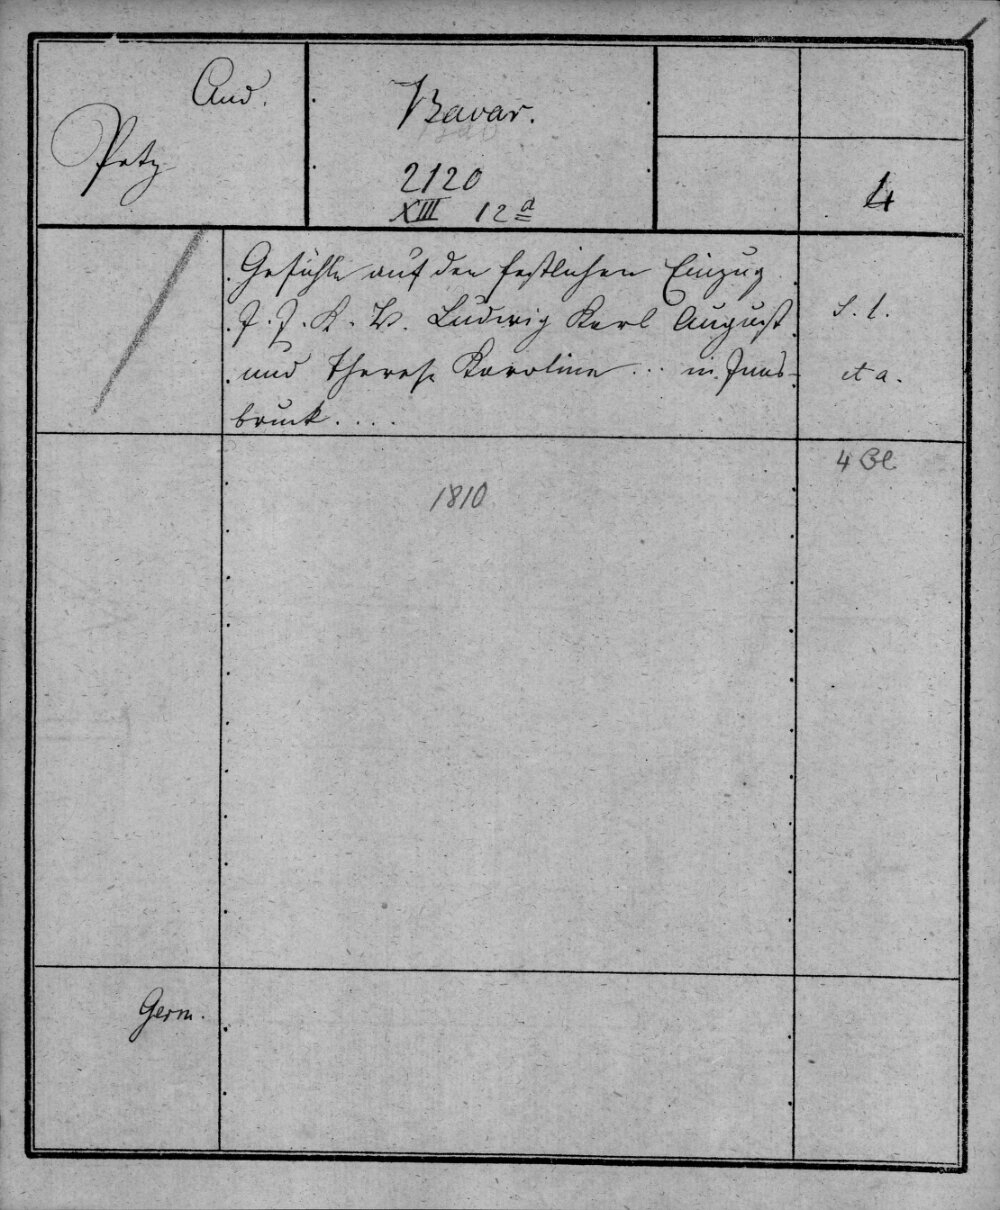 And.
Petz
Bavar.
2120
XIII 12 d
4
Gefühle auf den festlichen Einzug
J. J. K. H. Ludwig Karl August
und Therese Karoline ... in Inns-
bruck . . . .
S. l.
et a.
4 Bl.
1810
Germ.